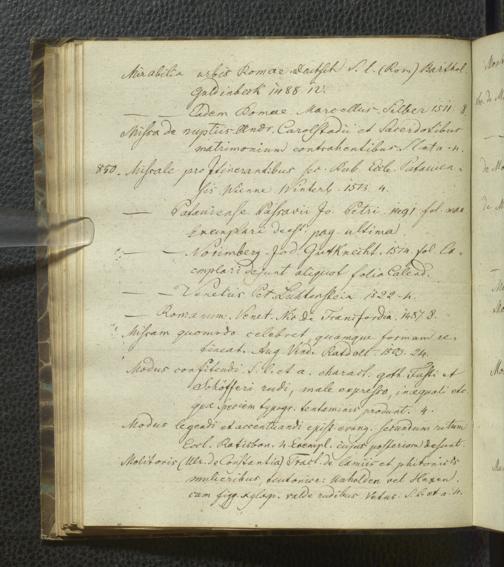 Mirabilia urbis Romae Deutsch S. l. (Rom) Barthol.
Guldinbeck 1488 12.
— — Eadem Romae Marcellus Silber 1511 8
Missa de nuptiis Andr. Carolstadii et Sacerdotibus
matrimonium contrahentibus. S. l. et a. 4.
850. Missale pro Itinerantibus sec. Rub. Eccle. Patavien-
sis Vienne Winterb. 1513. 4.
— Pataviense Passavii Jo. Petri. 1491 fol. max
Exemplari deest pag. ultima.
— — Norimberg. Jod. Gutknecht. 1514 fol. Ex-
emplari desunt aliquot folia Calend.
— — Venetiis Pet. Liechtenstein 1522. 4.
— Romanum. Venet. Nic. de Francfordia. 1487 8.
Missam quomodo celebret, quamque formam re-
tineat. Aug. Vind. Ratdolt. 15 24.
Modus confitendi S. l. et a. charact. goth. Fusti et
Schöfferi rudi, male expresso, inaequali etc.
quae speciem typogr. tentaminis produnt. 4.
Modus legendi et accentuandi epist. evang. secundum ritum
Eccl. Ratisbon. 4 Exempl. cujus posteriora desunt.
Molitoris (Ulr. de Constantia) Tract. de Lamiis et phitonicis
mulieribus, teutonice: Unholden vel Hexen.
cum figg. xylogr. valde rudibus Vetus. S. l. et a. 4.